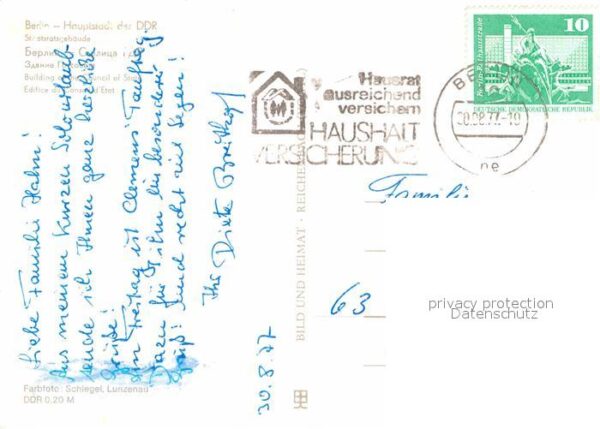 Berlin – Hauptstadt der DDR
Staatsratsgebäude
Берлин Столица
Здание
Building Council of State
Edifice du Conseil d'Etat
Liebe Familie Hahn!
Aus meinem kurzen Schonurlaub
sende ich Ihnen ganz herzliche
Grüße!
Am Freitag ist Clemens Tauftag.
Dazu für ihn ein besonderer
Gruß! Und recht viel Segen!
Ihr Dieter
30.8.77
Farbfoto: Schlegel, Lunzenau
DDR 0,20 M
BILD UND HEIMAT · REICHENBACH
Hausrat
ausreichend
versichern
HAUSHALT
VERSICHERUNG
BERLIN
30.08.77-19
10
Berlin-Rathausstraße
DEUTSCHE DEMOKRATISCHE REPUBLIK
Familie
63
privacy protection
Datenschutz